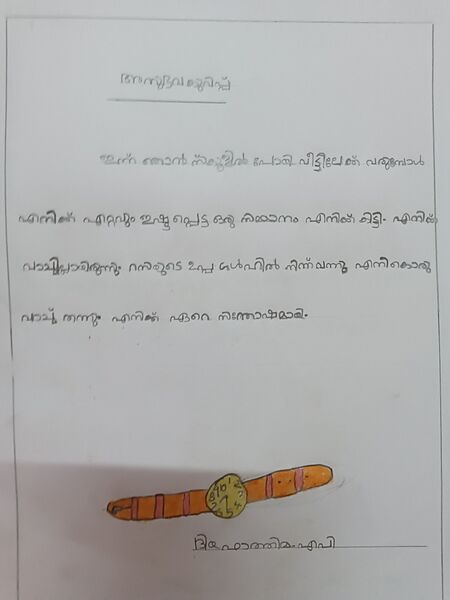 അനുഭവക്കുറിപ്പ്
ഇന്ന് ഞാൻ സ്കൂളിൽ പോയി വീട്ടിലേക്ക് വരുമ്പോൾ
എനിക്ക് ഏറ്റവും ഇഷ്ടപ്പെട്ട ഒരു സമ്മാനം എനിക്ക് കിട്ടി. എനിക്ക്
വാച്ചില്ലായിരുന്നു. ഉപ്പ ഗൾഫിൽ നിന്ന് വന്നു എനിക്കൊരു
വാച്ച് തന്നു. എനിക്ക് ഏറെ സന്തോഷമായി.
ദിയ ഫാത്തിമ. എപി